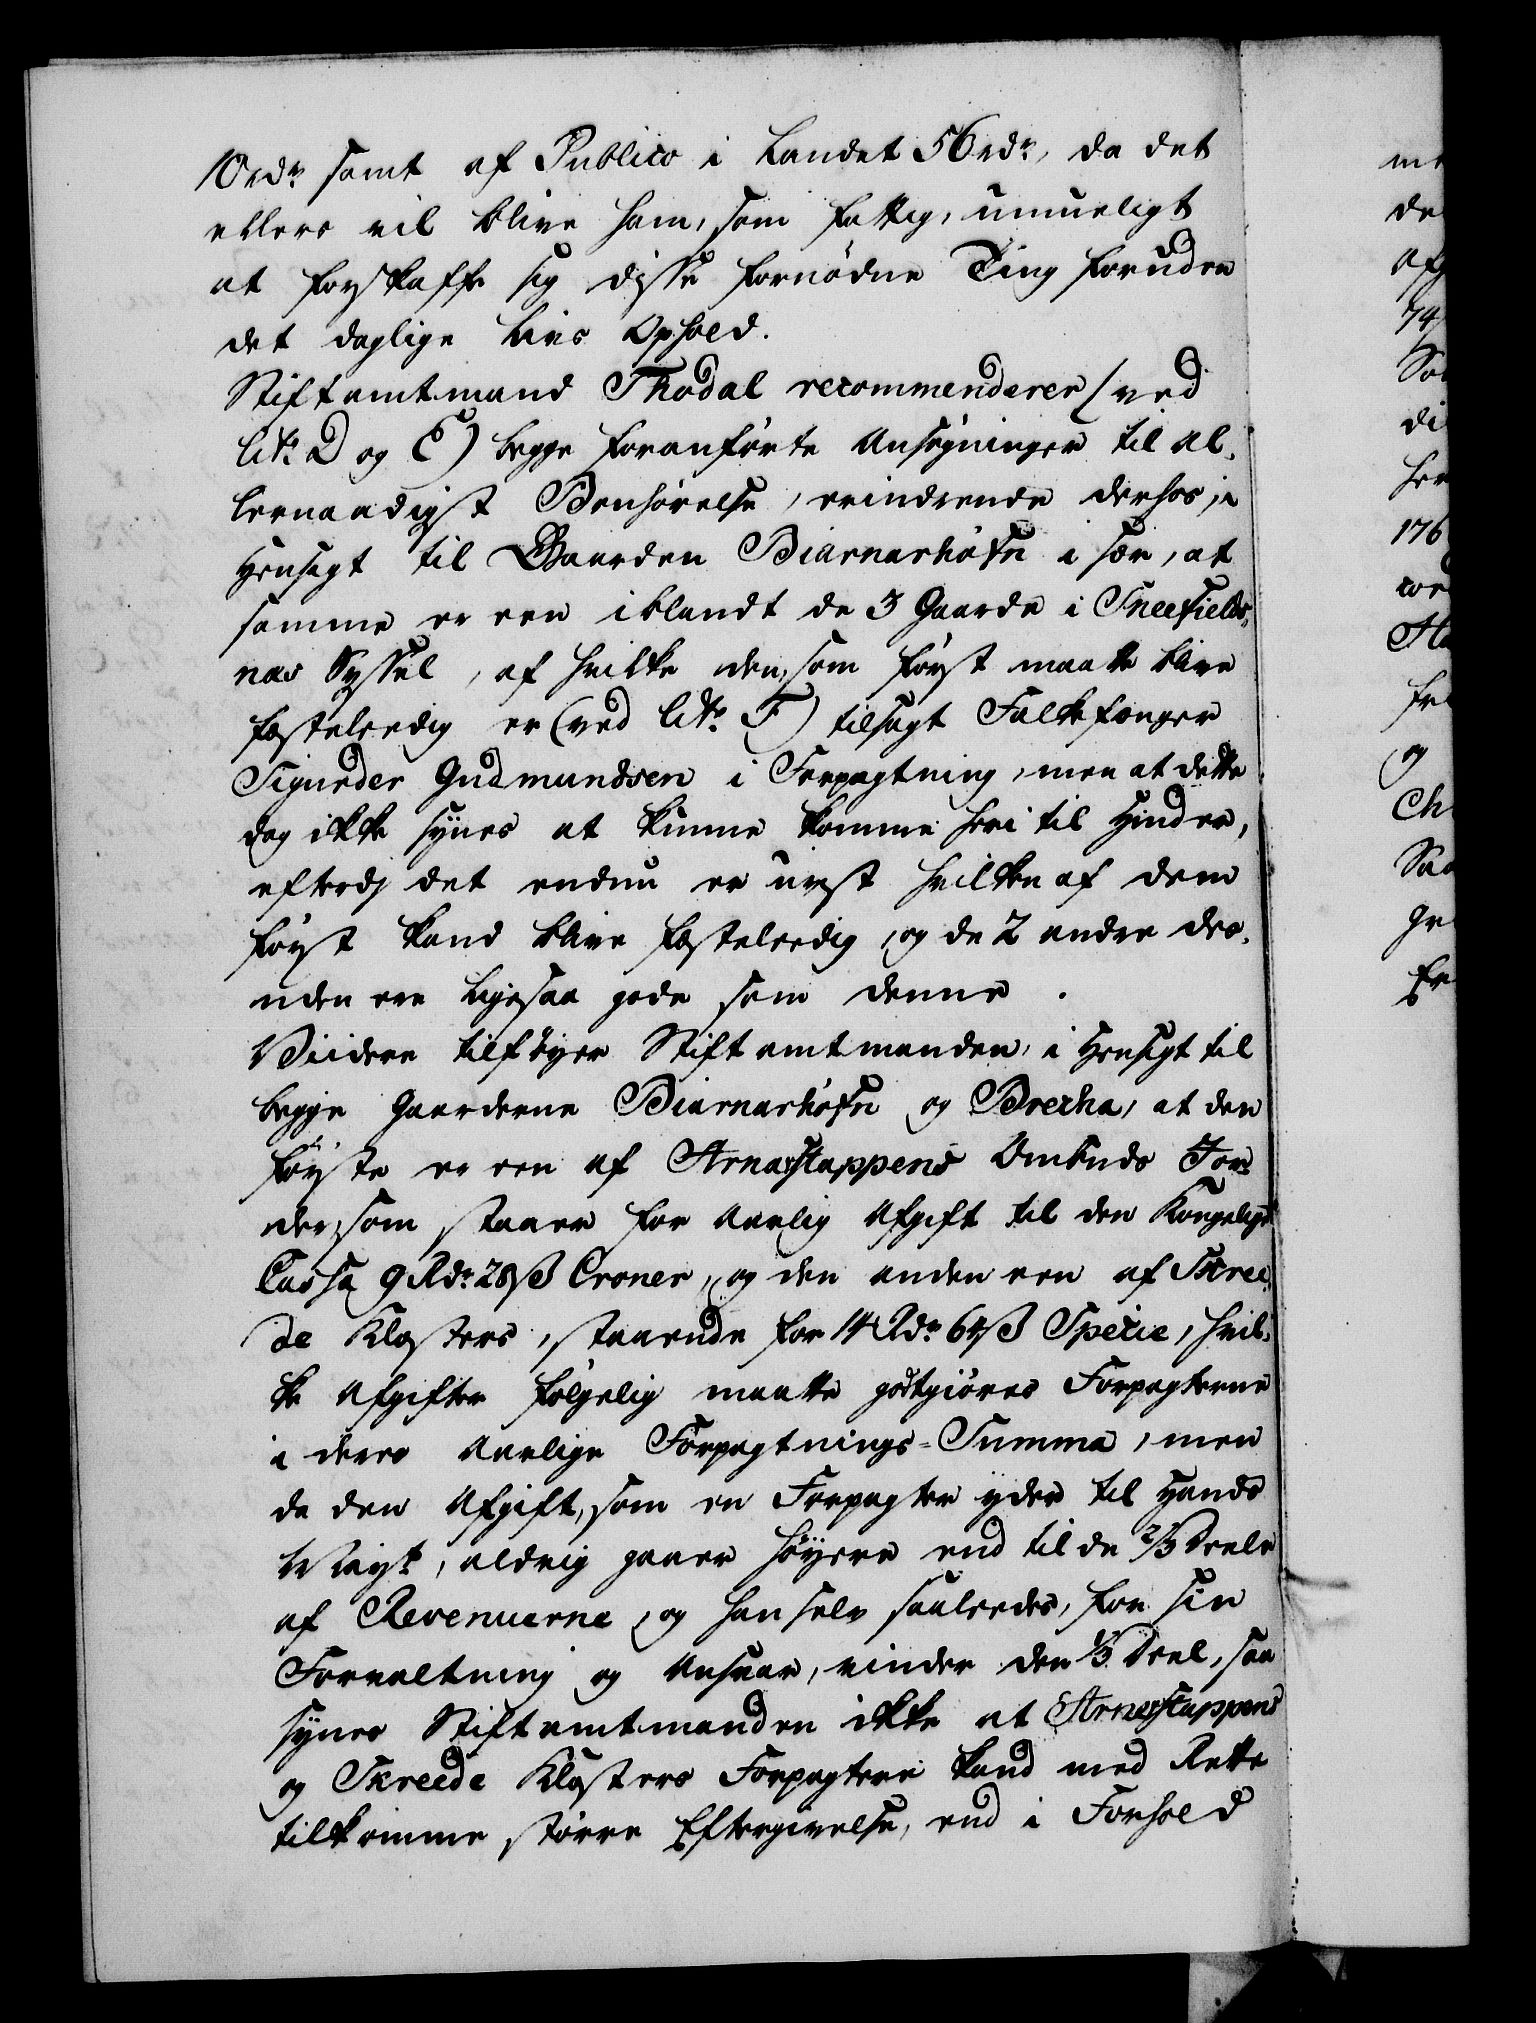 10 rdr samt af Publico i Landet 56 rdr, da det
ellers vil blive ham, som fattig, umueligt
at forskaffe sig disse fornødne Ting foruden
det daglige Livs Ophold.
Stiftamtmand Thodal recommenderer /ved
Litr. D og E) begge foranførte Ansøgninger til al-
lernaadigst Bønhørelse, erindrende derhos, i
Hensigt til Gaarden Biarnarhöfn i sær, at
samme er een iblandt de 3 Gaarde i Sneefields-
nas Syssel, af hvilke den, som først maatte blive
fæsteleedig er (ved Litr. F) tilsagt Falkefanger
Sigurder Gudmundsen i Forpagtning, men at dette
dog ikke synes at kunne komme heri til Hinder,
efterdj det endnu er uvist hvilken af dem
først kand blive fæsteleedig, og de 2 andre des-
uden ere ligesaa gode som denne.
Viidere tilføyer Stiftamtmanden, i Hensigt til
begge Gaardene Biarnarhöfn og Brecka, at den
første er een af Arnarstappens Ombuds Jor-
der, som staaer for aarlig Afgift til den Kongelige
Cassa 9 Rdr 28 ß Croner, og den anden een af Skree-
de Klosters, staaende for 14 Rdr 64 ß Specie, hvil-
ke Afgifter følgelig maatte godtgiøres Forpagterne
i deres aarlige Forpagtnings-Summa, men
da den Afgift, som en Forpagter yder til Hands
Mayt, aldrig gaaer høyere end til de 2/3 Deele
af Revenuerne, og han selv saaledes, for sin
Forvaltning og Ansvar, vinder den 1/3 Deel, saa
synes Stiftamtmanden ikke at Arnarstappens
og Skreede Klosters Forpagtere kand med Rette
tilkomme større Eftergivelse, end i Forhold